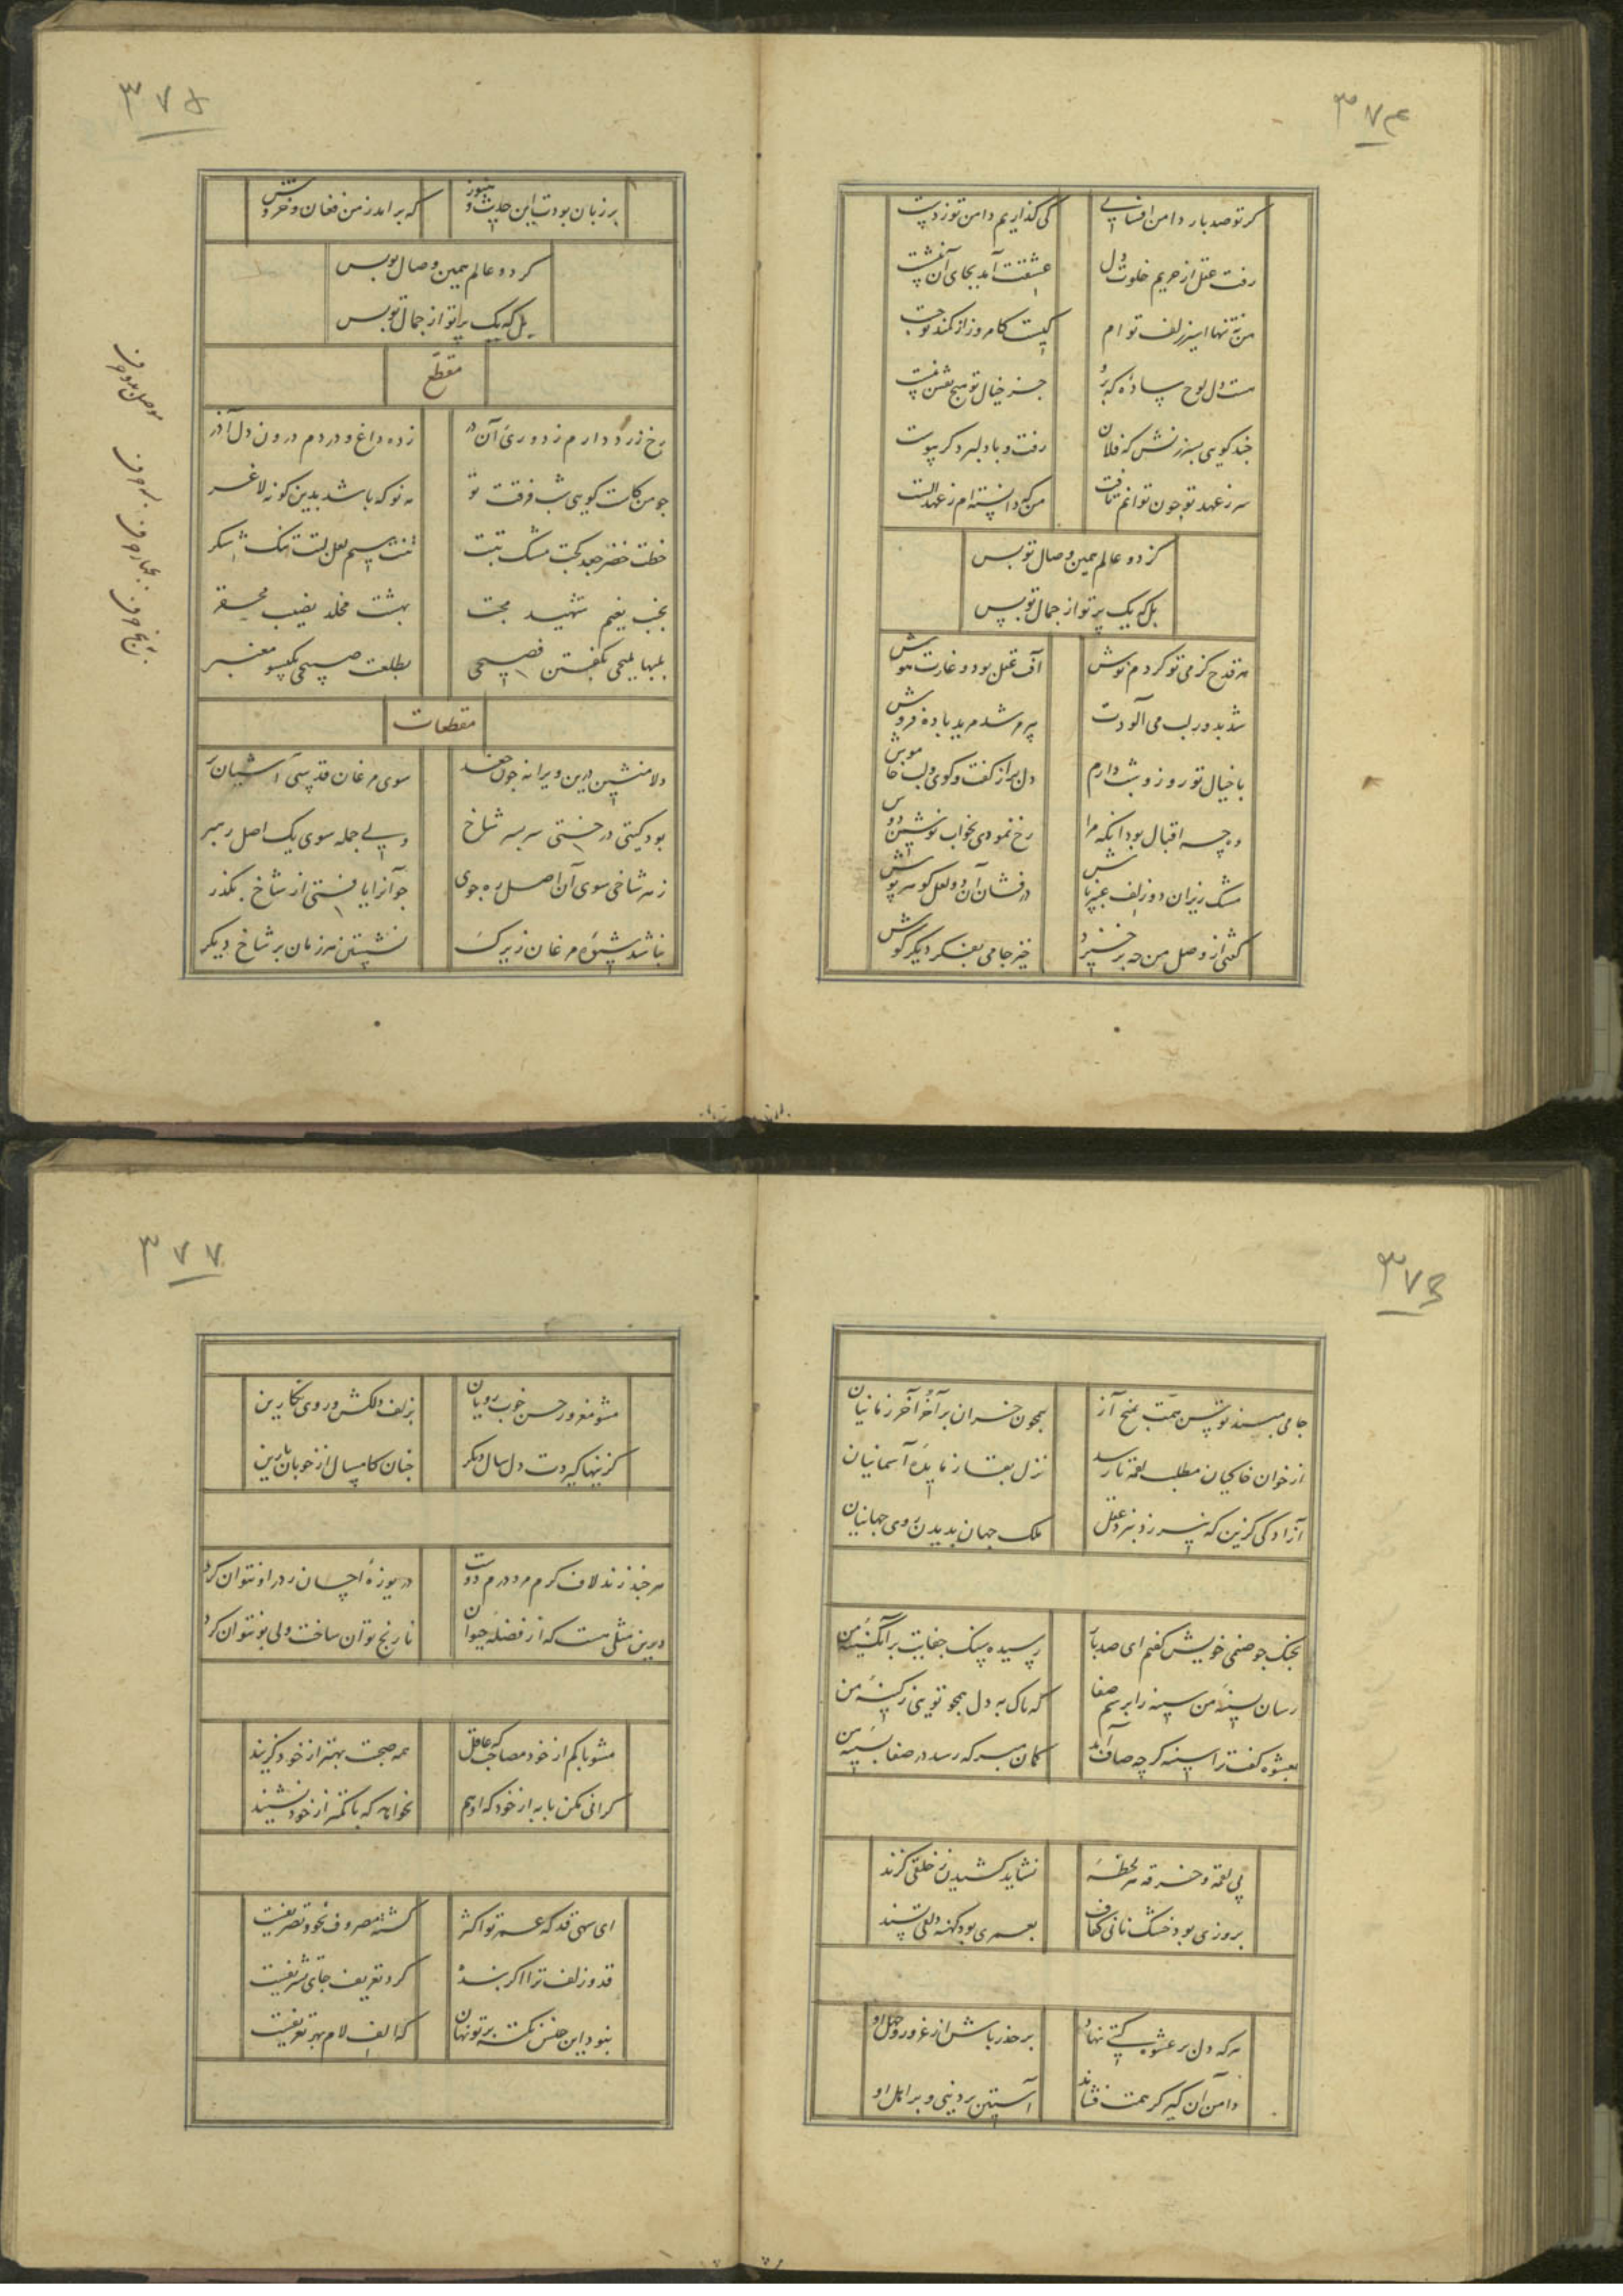 ۳۷۴
گر تو صد بار دامن افشانی
کی گذاریم دامن تو ز دست
رفت عقل از حریم خلوت دل
عشقت آمد بجای آن بنشست
من نه تنها اسیر زلف تو ام
کیست کامروز از کمند تو جست
هست دل لوح ساده که برو
جز خیال تو هیچ نقش نبست
چند گویی بسرزنش که فلان
رفت و با دلبر دگر پیوست
سر ز عهد تو چون توانم تافت
من که دانسته‌ام ز عهد الست
کز دو عالم همین وصال تو بس
بل که یک پرتو از جمال تو بس
هر قدح کز می تو کردم نوش
آفت عقل بود و غارت هوش
شد بدور لب می آلودت
پیر مرشد مرید باده فروش
با خیال تو روز و شب دارم
دل پر از گفت و گوی و لب خاموش
وه چه اقبال بود آنکه مرا
رخ نمودی بخواب نوشین دوش
مشک ریزان دو زلف عنبر پاش
در فشان آن دو لعل گوهر پوش
گفتی از وصل من چه برخیزد
خیز جامی بفکر دیگر کوش
۳۷۵
بر زبان بودت این حدیث و هنوز
که برامد ز من فغان و خروش
کز دو عالم همین وصال تو بس
بل که یک پرتو از جمال تو بس
مقطع
رخ زرد دارم ز دوری آن در
زده داغ و دردم درون دل آذر
چو من کاست گویی شب فرقت تو
مه نو که باشد بدین گونه لاغر
خطت خضر جعد کجت مشک تبت
تنت سیم لعل لبت تنگ شکر
بهشت مخلد نصیب محقر
بلبها ملیحی بگفتن فصیحی
بطلعت صبیحی بگیسو معنبر
موصل دو حرف
سه حرف
بچهار حرف
پنج حرف
مقطعات
دلا منشین درین ویرانه چون جغد
سوی مرغان قدسی آشیان پر
بود گیتی درختی سر بسر شاخ
ولی جمله سوی یک اصل رهبر
ز هر شاخی سوی آن اصل ره جوی
چو آنرا یافتی از شاخ بگذر
نباشد شیوه مرغان زیرک
نشستن هر زمان بر شاخ دیگر
۳۷۶
جامی مبند توشن همت بمیخ آز
همچون خسران برآخر آخر زمانیان
از خوان خاکیان مطلب لقمه تا رسد
نزل بقا ز مایده آسمانیان
آزادگی گزین که نیرزد بنزد عقل
ملک جهان بدیدن روی جهانیان
بجنگجو صنمی خویش گفتم ای صد بار
رسیده سنگ جفایت بر آبگینه من
رسان بسینه من سینه را برسم صفا
که پاک به دل همچو تویی ز کینه من
بعشوه گفت ترا سینه گرچه صاف آمد
گمان مبر که رسد در صفا بسینه من
پی لقمه و خرقه هر لحظه
نشاید کشیدن ز خلقی گزند
بروزی بود خشک نانی کفاف
بعمری بود کهنه دلقی پسند
هر که دل بر عشوه گیتی نهاد
بر حذر باش از غرور و جهل او
دامن آن گیر کز همت فشاند
آستین بر دنیی و بر اهل او
۳۷۷
مشو مغرور حسن خوب رویان
بزلف دلکش و روی نگارین
کز اینها گیردت دل سال دیگر
چنان کامسال از خوبان پارین
هر چند زند لاف کرم مرد درم دوست
دریوزه احسان ز در او نتوان کرد
دیرین مثلی هست که از فضله حیوان
نارنج توان ساخت ولی بو نتوان کرد
مشو با کم از خود مصاحب که عاقل
همه صحبت بهتر از خود گزیند
گرانی مکن با به از خود که او هم
نخواهد که با کمتر از خود نشیند
ای سهی قد که عمر تو اکثر
گشته مصروف نحو و تصریفست
قد و زلف ترا اگر بنده
کرد تعریف جای تشریفست
نبود این جنس نکته بر تو نهان
که الف لام بهر تعریفست